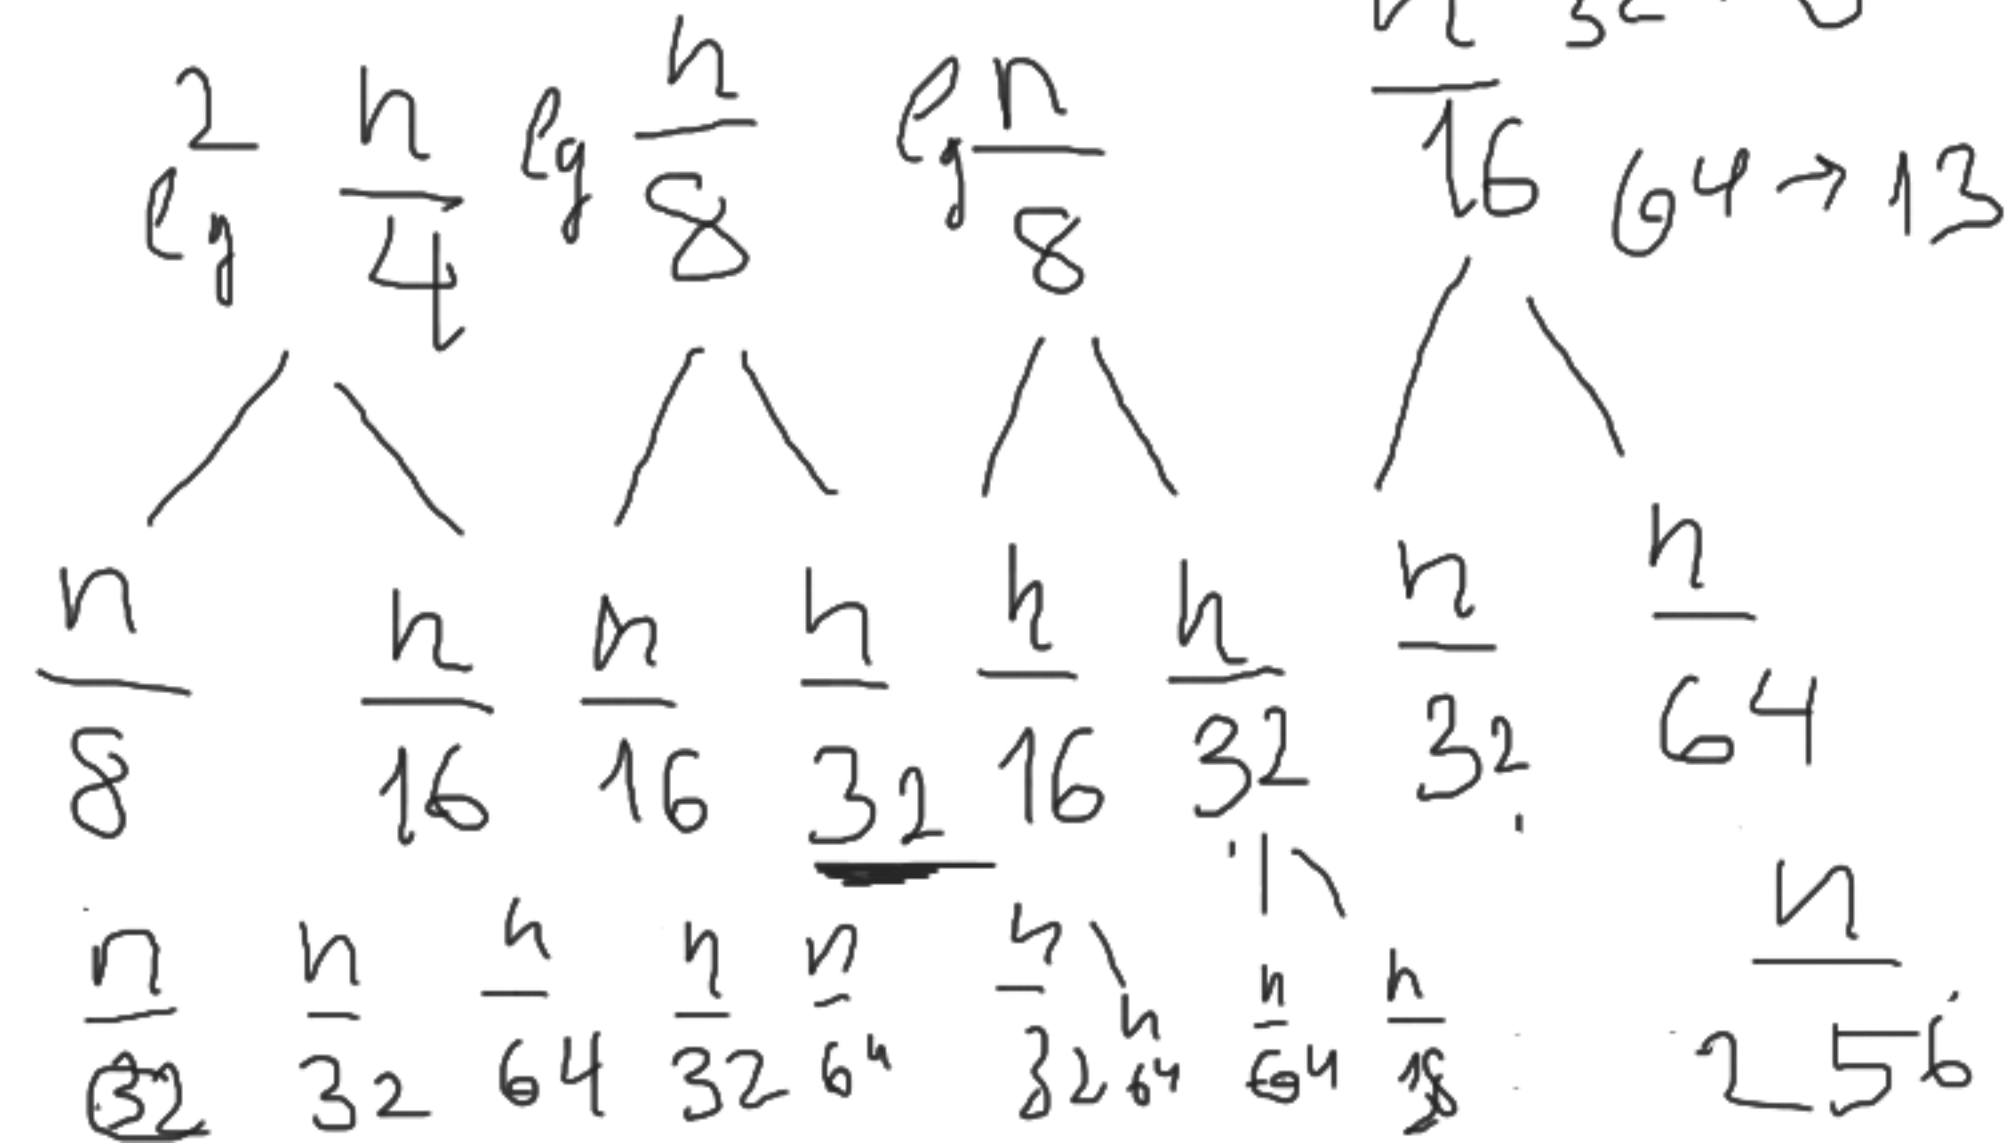 2 lg n/4 lg n/8 lg n/8 n/16
64 → 13
n/8 n/16 n/16 n/32 n/16 n/32 n/32 n/64
n/32 n/32 n/64 n/32 n/64 n/32 n/64 n/64 n/256